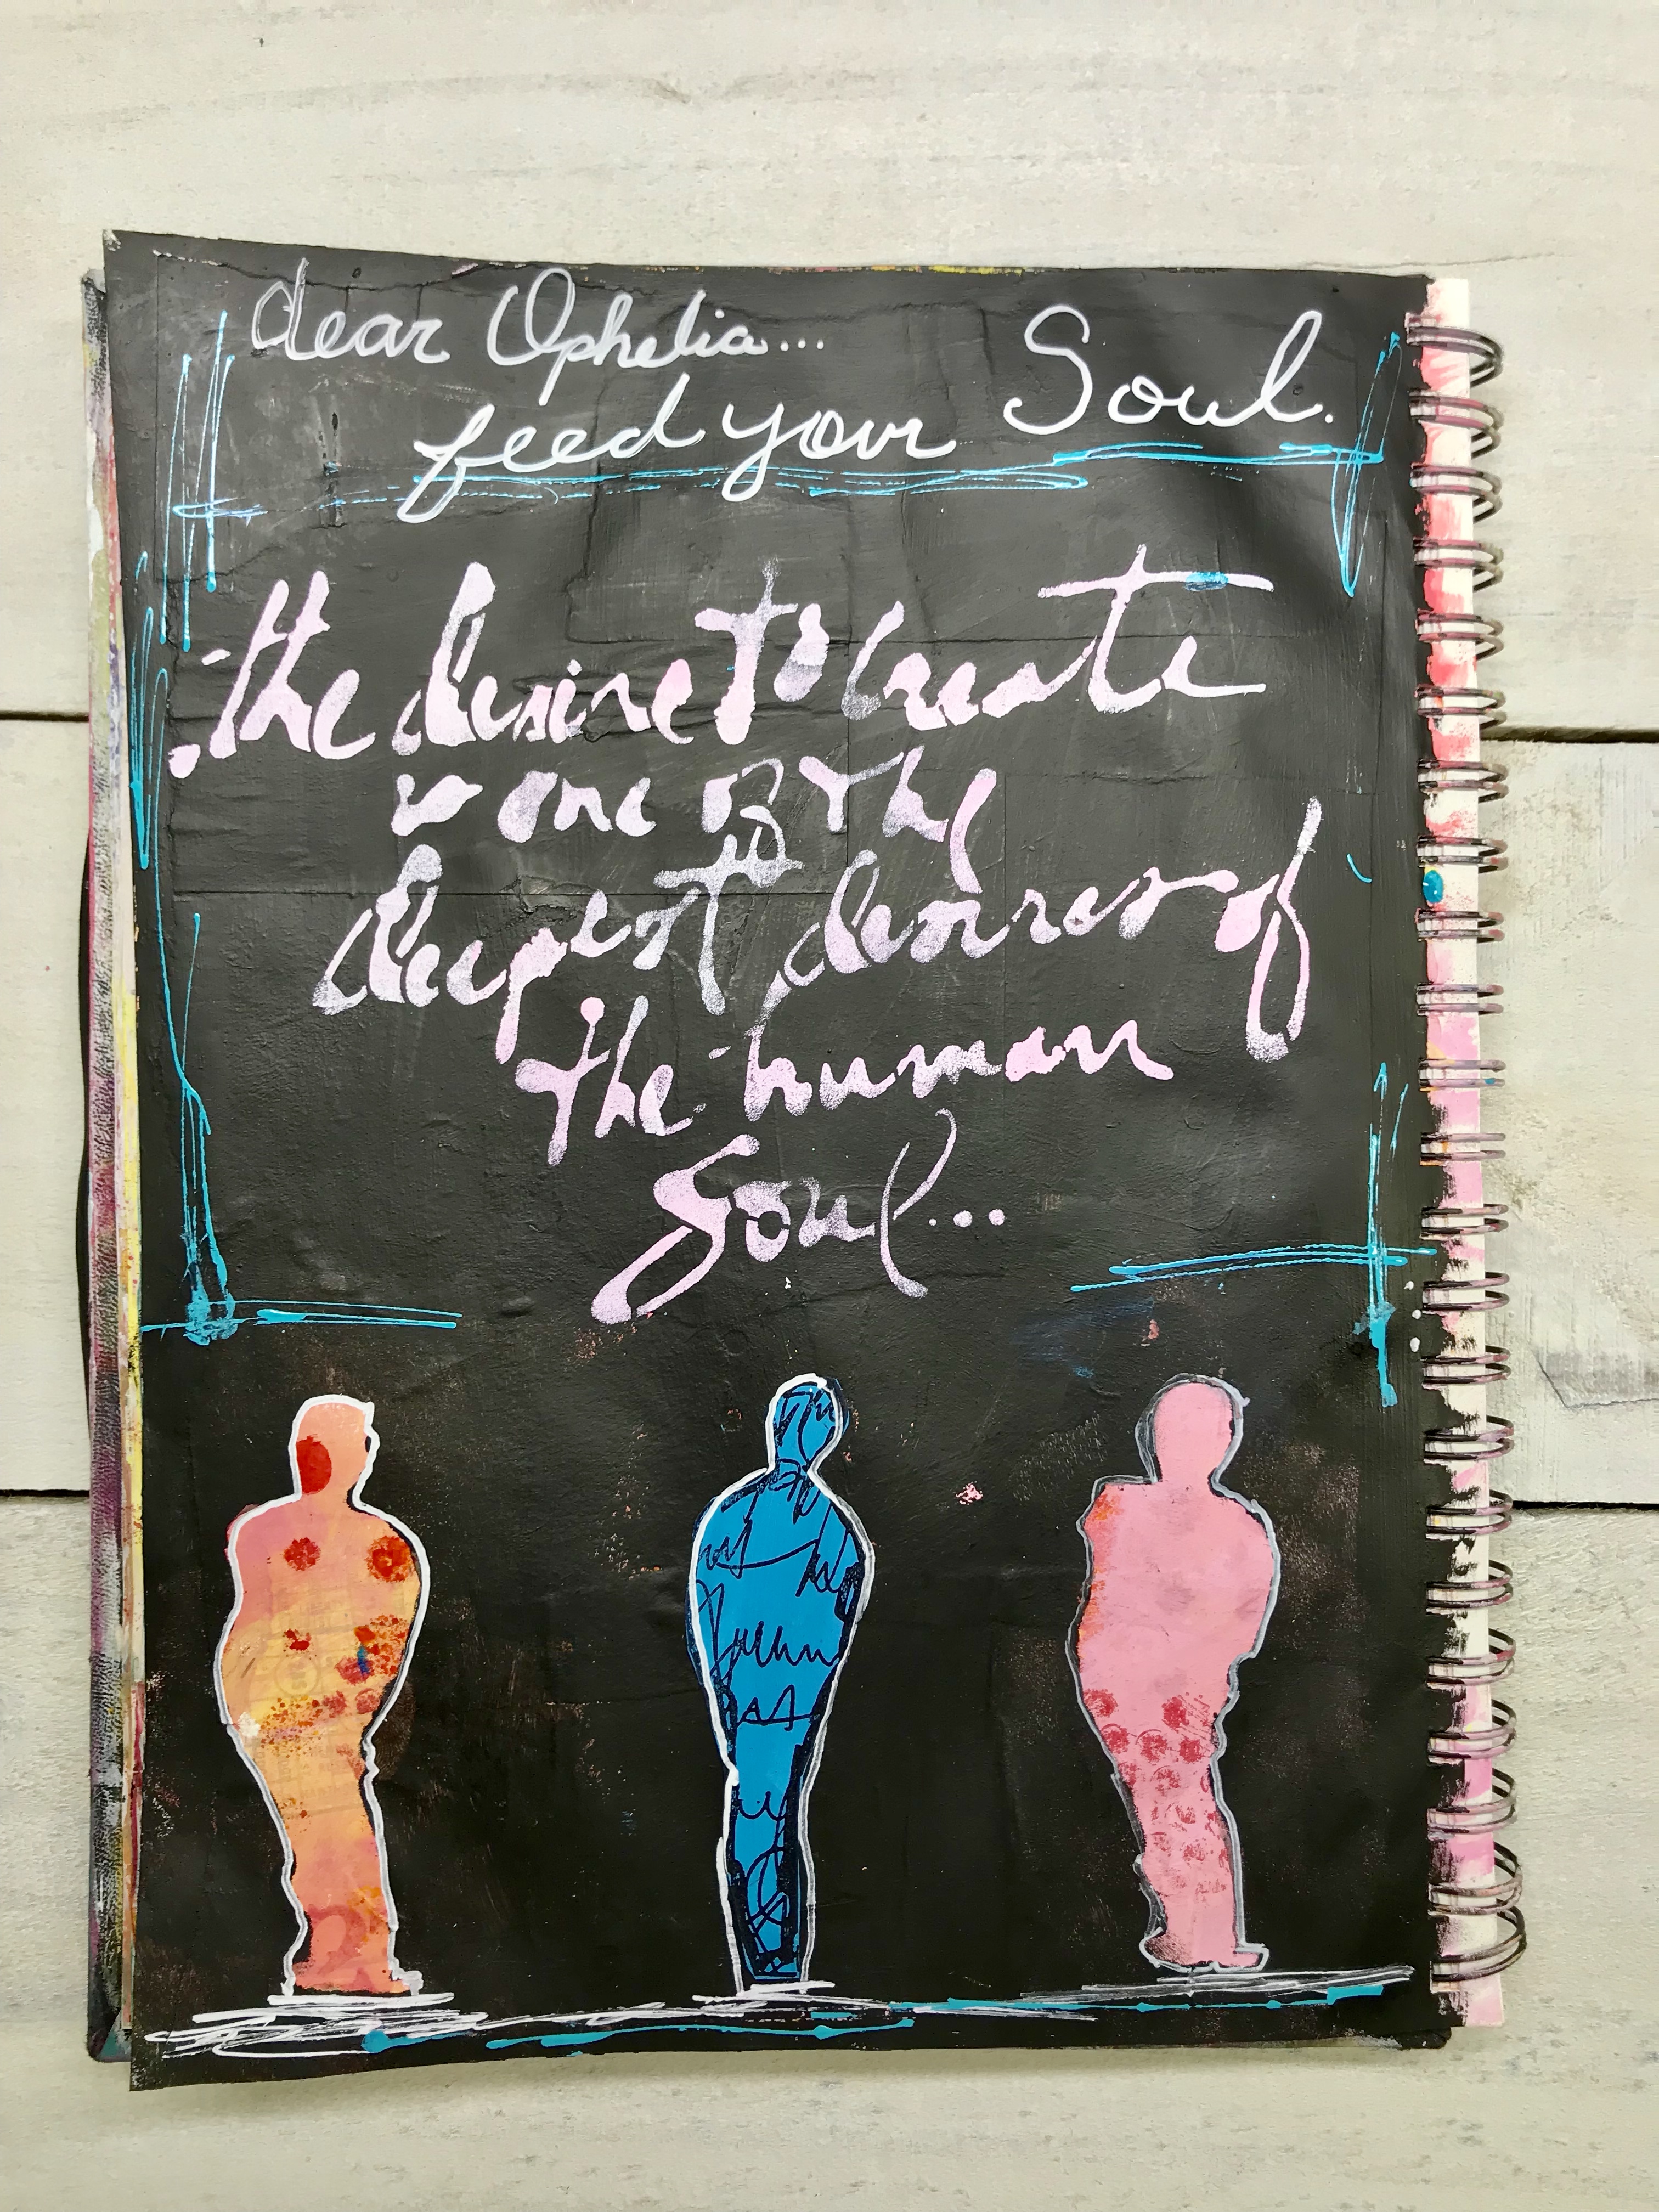 dear Ophelia...
feed your Soul.
the desire to create
is one of the
deepest desires of
the human
Soul...